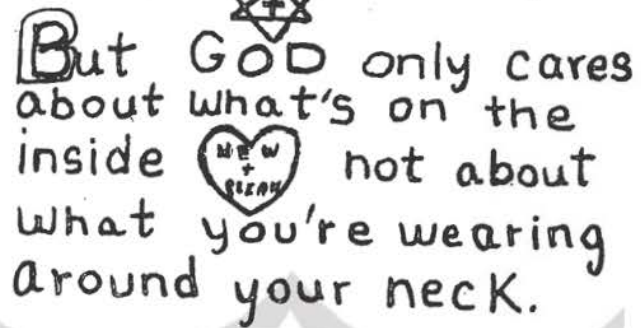 But GOD only cares
about what's on the
inside NEW + CLEAN not about
what you're wearing
around your neck.